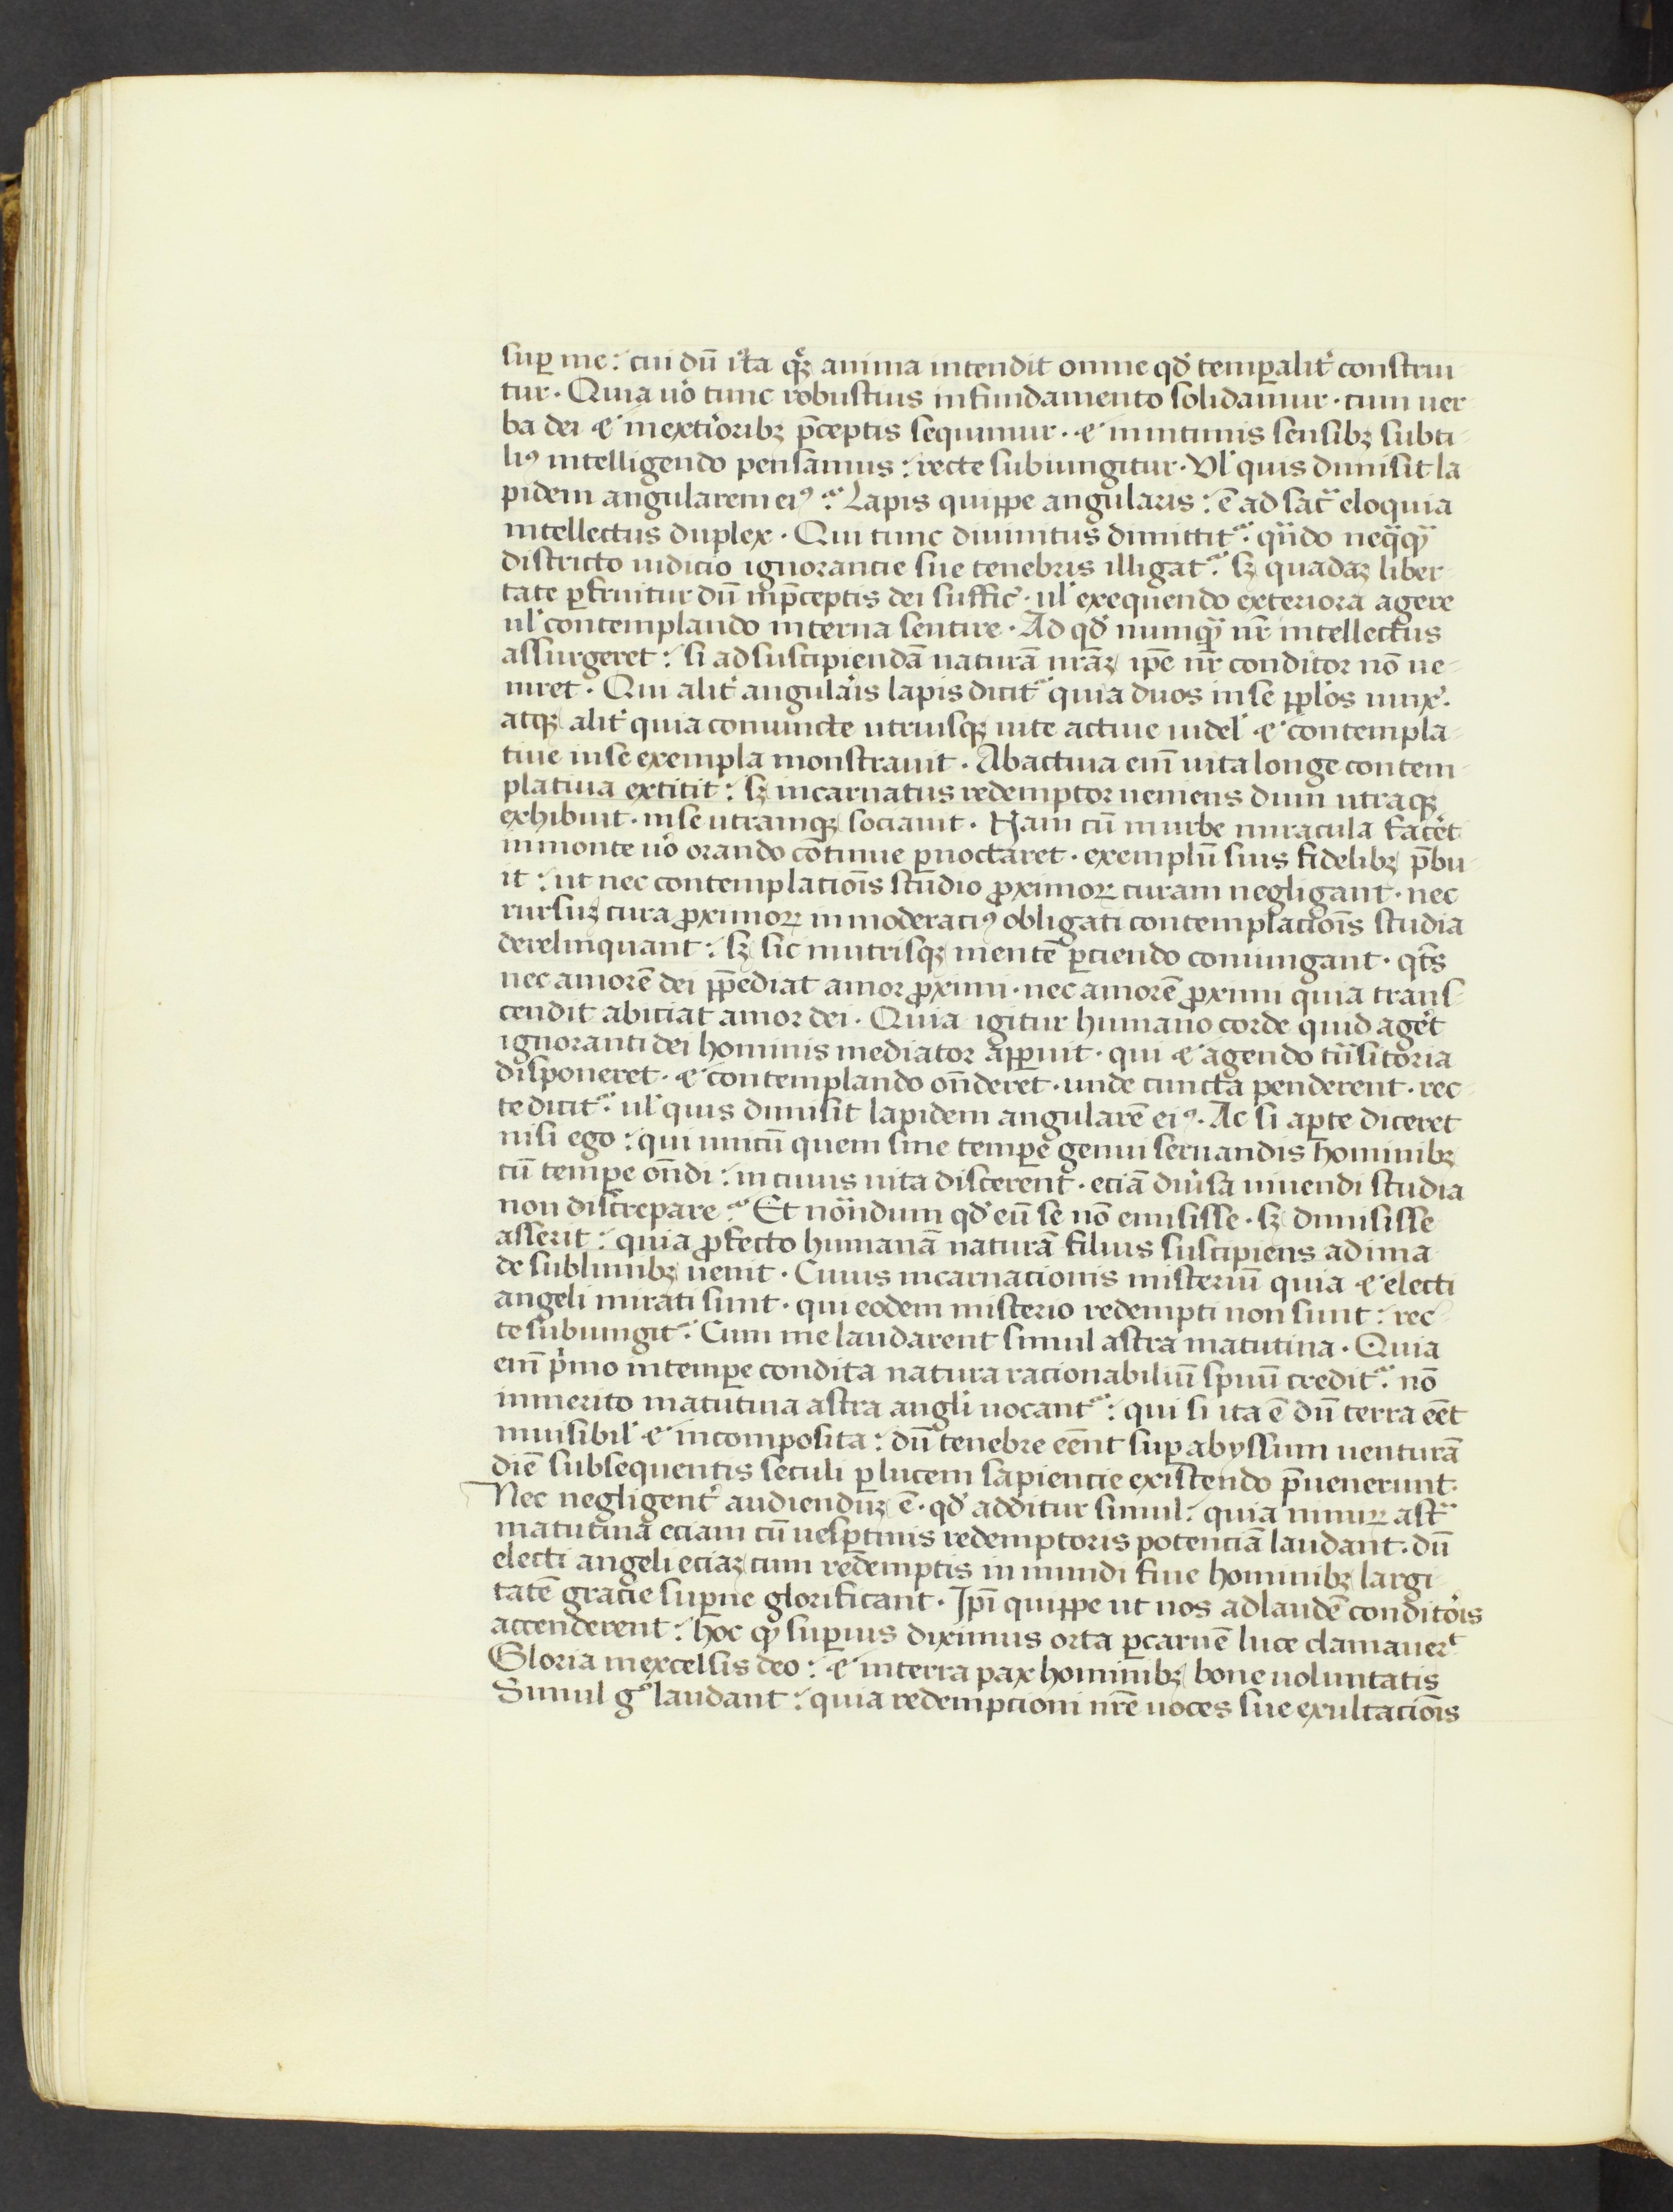 sup̱ me: cui dū ita q̇ꝫ anima intendit omne qd̓ temp̱alit̓ construi
tur. Quia uo̓ tunc robustius infundamento solidamur. cum uer
ba dei ⁊ inexteriorib; p̄ceptis sequimur. ⁊ inintimis sensib; subti
liꝰ intelligendo pensamus: recte subiungitur. Ul̓ quis dimisit la
pidem angularem eiꝰ. Lapis quippe angularis: ē ad sac̃ eloquia
intellectus duplex. Qui tunc diuinitus dimittit᷑. qñdo neq̃q̃
districto iudicio ignorancie sue tenebris illigat᷑. sꝫ quadaꝫ liber
tate ꝑfruitur dū inp̄ceptis dei suffic̓. ul̓ exequendo exteriora agere
ul̓ contemplando interna sentire. Ad qd̓ numq̃ nr̄ intellectus
assurgeret: si adsuscipiendā naturā nrāꝫ ip̄e nr̄ conditor nō ue
niret. Qui alit̓ angularis lapis dicit᷑ quia duos inse pp̱los iunx̓.
atqꝫ alit̓ quia coniuncte utriusqꝫ uite actiue uidel̓ ⁊ contempla
tiue inse exempla monstrauit. Abactiua eni̅ uita longe contem
platiua extitit: sꝫ incarnatus redemptor ueniens dum utraqꝫ
exhibuit. inse utramqꝫ sociauit. Nam cū inurbe miracula facẽt
inmonte uo̓ orando cōtinue ꝑnoctaret. exemplū suis fidelibꝫ p̄bu
it: ut nec contemplaciois̄ studio ꝓximoꝝ curam negligant. nec
rursuꝫ cura ꝓximoꝝ inmoderaciꝰ obligati contemplaciois̄ studia
derelinquant: sꝫ sic inutrisqꝫ mentē ꝑciendo coniungant. qt̓s
nec amorē dei p̱p̄ediat amor ꝓximi. nec amorē ꝓximi quia trans
cendit abiciat amor dei. Quia igitur humano corde quid agẽt
ignoranti dei hominis mediator apparuit. qui ⁊ agendo trñsitoria
disponeret. ⁊ contemplando on̄deret. unde cuncta penderent. rec
te dicit᷑. ul̓ quis dimisit lapidem angularē eiꝰ. Ac si aꝑte diceret
nisi ego: qui unicū quem sine tempe̱ genui seruandis hominibꝫ
cū tempe̱ on̄di: incuius uita discerent. eciā diũsa uiuendi studia
non discrepare. Et notandum qd̓ eū se nō emisisse. sꝫ dimisisse
asserit: quia ꝓfecto humanā naturā filius suscipiens adima
de sublimibꝫ uenit. Cuius incarnacionis misteriū quia ⁊ electi
angeli mirati sunt. qui eodem misterio redempti non sunt: rec
te subiungit᷑. Cum me laudarent simul astra matutina. Quia
eni̅ p̓mo intempe̱ condita natura racionabiliū spiuū credit᷑. nō
inmerito matutina astra angli̓ uocant᷑: qui si ita ē dū terra eēt
inuisibil̓ ⁊ incomposita: dū tenebre eēnt sup̱ abyssum uenturā
diē subsequentis seculi ꝑ lucem sapiencie existendo p̄uenerunt.
Nec negligent̓ audienduꝫ ē. qd̓ additur simul: quia nimiꝝ ast̃
matutina eciam cū uesꝑtinis redemptoris potenciā laudant. dū
electi angeli eciaꝫ cum redemptis inmundi fine hominibꝫ largi
tatē gracie superne glorificant. Ip̄i quippe ut nos adlaudē conditoris
accenderent: hoc qͥ superius diximus orta ꝑcarnē luce clamauerᵗ
Gloria inexcelsis deo: ⁊ interra pax hominibꝫ bone uoluntatis
Simul gͦ laudant: quia redempcioni nr̄e uoces sue exultaciois̄